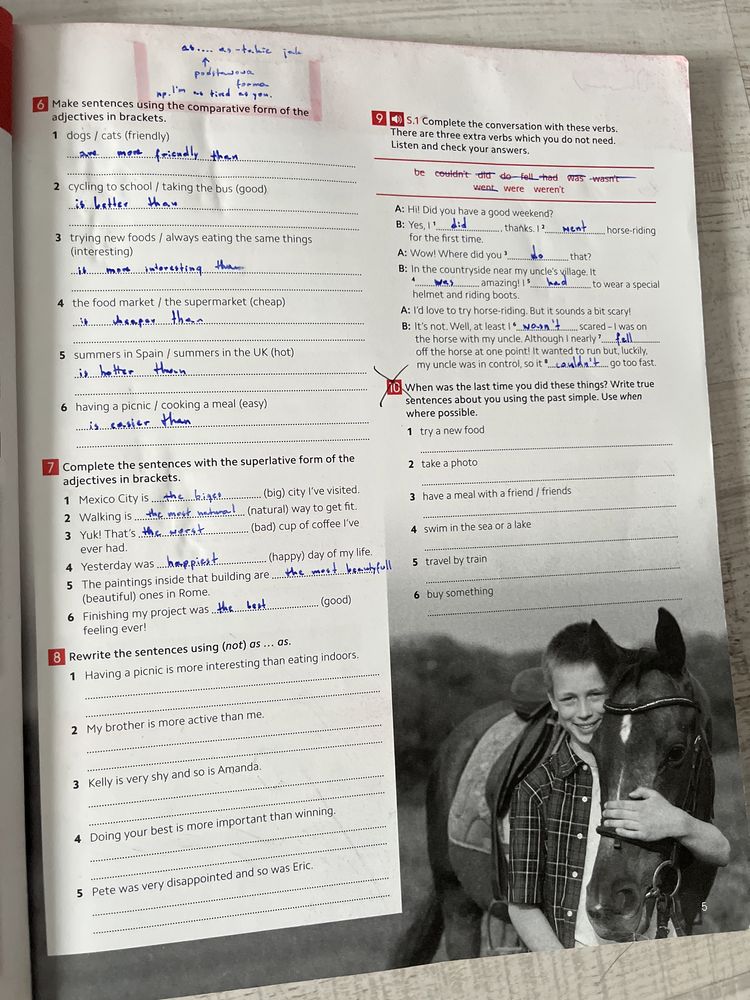 as.... as - takie jak
↑
podstawowa
forma
np. I'm as tired as you.
6 Make sentences using the comparative form of the
adjectives in brackets.
1 dogs / cats (friendly)
are more friendly than
2 cycling to school / taking the bus (good)
is better than
3 trying new foods / always eating the same things
(interesting)
is more interesting than
4 the food market / the supermarket (cheap)
is cheaper than
5 summers in Spain / summers in the UK (hot)
is hotter than
6 having a picnic / cooking a meal (easy)
is easier than
7 Complete the sentences with the superlative form of the
adjectives in brackets.
1 Mexico City is the biges (big) city I've visited.
2 Walking is the most natural (natural) way to get fit.
3 Yuk! That's the worst (bad) cup of coffee I've
ever had.
4 Yesterday was happiest (happy) day of my life.
5 The paintings inside that building are the most beautyfull
(beautiful) ones in Rome.
6 Finishing my project was the best (good)
feeling ever!
8 Rewrite the sentences using (not) as ... as.
1 Having a picnic is more interesting than eating indoors.
2 My brother is more active than me.
3 Kelly is very shy and so is Amanda.
4 Doing your best is more important than winning.
5 Pete was very disappointed and so was Eric.
9 S.1 Complete the conversation with these verbs.
There are three extra verbs which you do not need.
Listen and check your answers.
be couldn't did do fell had was wasn't
went were weren't
A: Hi! Did you have a good weekend?
B: Yes, I 1 did, thanks. I 2 went horse-riding
for the first time.
A: Wow! Where did you 3 do that?
B: In the countryside near my uncle's village. It
4 was amazing! I 5 had to wear a special
helmet and riding boots.
A: I'd love to try horse-riding. But it sounds a bit scary!
B: It's not. Well, at least I 6 wasn't scared – I was on
the horse with my uncle. Although I nearly 7 fell
off the horse at one point! It wanted to run but, luckily,
my uncle was in control, so it 8 couldn't go too fast.
10 When was the last time you did these things? Write true
sentences about you using the past simple. Use when
where possible.
1 try a new food
2 take a photo
3 have a meal with a friend / friends
4 swim in the sea or a lake
5 travel by train
6 buy something
5